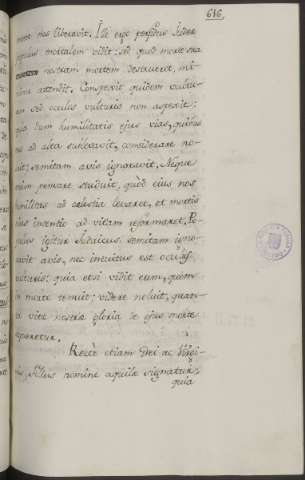 646.
morte nos liberavit. Ille ergo perfidus Judæo
populus mortalem vidit: sed quod morte sua
nostram mortem destrueret, mi-
nime attendit. Conspexit quidem vultu-
rem sed oculos vulturis non aspexit:
quia dum humilitatis ejus vias, quibus
nos ad alta sublevavit, considerare no-
luit; semitam avis ignoravit. Neque
enim pensare studuit, quòd ejus nos
humilitas ad cælestia levaret, et mortis
ejus intentio ad vitam reformaret. Po-
pulus igitur Judaicus semitam igno-
ravit avis, nec intuitus est oculos
vulturis: quia etsi vidit eum, quem
in morte tenuit; videre noluit, quan-
ta vitæ nostræ gloria de ejus morte
sequeretur.
Rectè etiam Dei ac Virgi-
nis Filius nomine aquilæ signatur;
quia